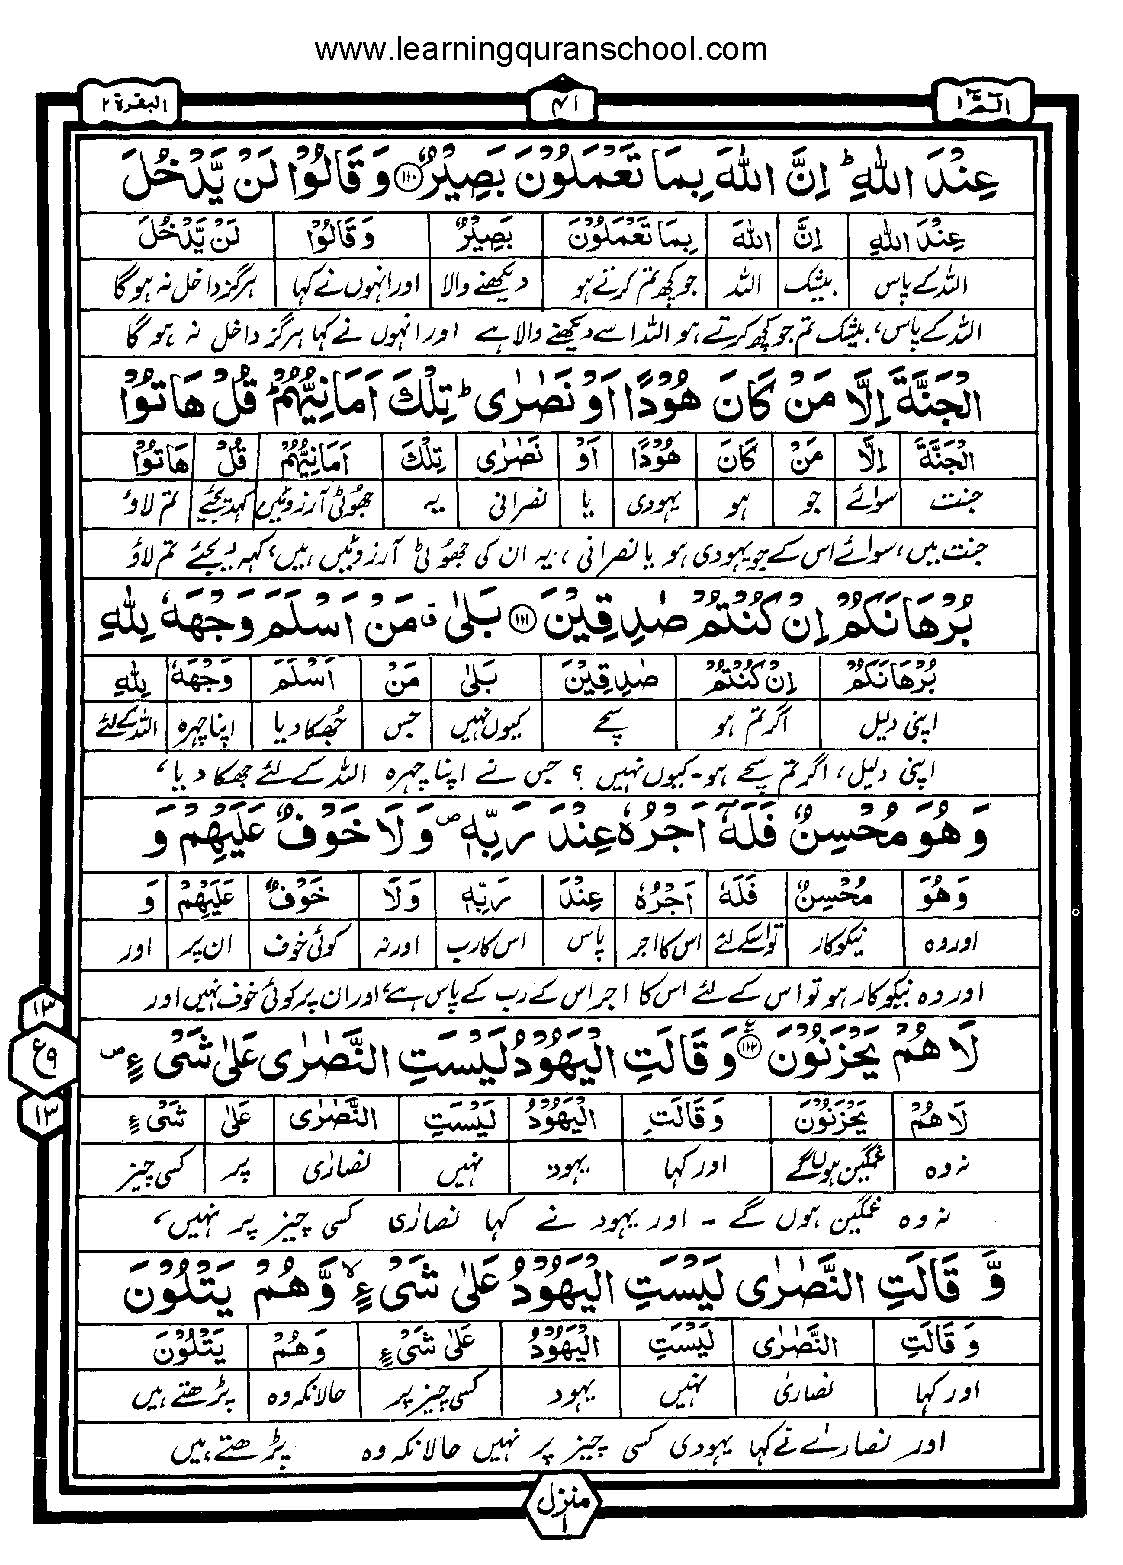 www.learningquranschool.com
الٓمّٓ ١ ٤١ البقرة ٢
عِنْدَ اللّٰهِ ؕ اِنَّ اللّٰهَ بِمَا تَعْمَلُوْنَ بَصِیْرٌ ۝۱۱۰ وَ قَالُوْا لَنْ یَّدْخُلَ
عِنْدَ اللّٰهِ اِنَّ اللّٰهَ بِمَا تَعْمَلُوْنَ بَصِیْرٌ وَ قَالُوْا لَنْ یَّدْخُلَ
اللہ کے پاس بیشک اللہ جو کچھ تم کرتے ہو دیکھنے والا اور انہوں نے کہا ہرگز داخل نہ ہوگا
اللہ کے پاس، بیشک تم جو کچھ کرتے ہو اللہ اسے دیکھنے والا ہے اور انہوں نے کہا ہرگز داخل نہ ہو گا
الْجَنَّةَ اِلَّا مَنْ كَانَ هُوْدًا اَوْ نَصٰرٰی ؕ تِلْكَ اَمَانِیُّهُمْ ؕ قُلْ هَاتُوْا
الْجَنَّةَ اِلَّا مَنْ كَانَ هُوْدًا اَوْ نَصٰرٰی تِلْكَ اَمَانِیُّهُمْ قُلْ هَاتُوْا
جنت سوائے جو ہو یہودی یا نصرانی یہ جھوٹی آرزوئیں کہدیجئے تم لاؤ
جنت میں، سوائے اس کے جو یہودی ہو یا نصرانی، یہ ان کی جھوٹی آرزوئیں ہیں، کہہ دیجئے تم لاؤ
بُرْهَانَكُمْ اِنْ كُنْتُمْ صٰدِقِیْنَ ۝۱۱۱ بَلٰی ۗ مَنْ اَسْلَمَ وَجْهَهٗ لِلّٰهِ
بُرْهَانَكُمْ اِنْ كُنْتُمْ صٰدِقِیْنَ بَلٰی مَنْ اَسْلَمَ وَجْهَهٗ لِلّٰهِ
اپنی دلیل اگر تم ہو سچے کیوں نہیں جس جھکا دیا اپنا چہرہ اللہ کے لئے
اپنی دلیل، اگر تم سچے ہو۔ کیوں نہیں ؟ جس نے اپنا چہرہ اللہ کے لئے جھکا دیا،
وَ هُوَ مُحْسِنٌ فَلَهٗۤ اَجْرُهٗ عِنْدَ رَبِّهٖ ۪ وَ لَا خَوْفٌ عَلَیْهِمْ وَ
وَ هُوَ مُحْسِنٌ فَلَهٗ اَجْرُهٗ عِنْدَ رَبِّهٖ وَ لَا خَوْفٌ عَلَیْهِمْ وَ
اور وہ نیکوکار تو اسکے لئے اس کا اجر پاس اس کا رب اور نہ کوئی خوف ان پر اور
اور وہ نیکوکار ہو تو اس کے لئے اس کا اجر اس کے رب کے پاس ہے، اور ان پر کوئی خوف نہیں اور
١٣
ع ٩
١٣
لَا هُمْ یَحْزَنُوْنَ ۝۱۱۲ وَ قَالَتِ الْیَهُوْدُ لَیْسَتِ النَّصٰرٰی عَلٰی شَیْءٍ ۪
لَا هُمْ یَحْزَنُوْنَ وَ قَالَتِ الْیَهُوْدُ لَیْسَتِ النَّصٰرٰی عَلٰی شَیْءٍ
نہ وہ غمگین ہوں گے اور کہا یہود نہیں نصارٰی پر کسی چیز
نہ وہ غمگین ہوں گے ۔ اور یہود نے کہا نصارٰی کسی چیز پر نہیں،
وَّ قَالَتِ النَّصٰرٰی لَیْسَتِ الْیَهُوْدُ عَلٰی شَیْءٍ ۙ وَّ هُمْ یَتْلُوْنَ
وَ قَالَتِ النَّصٰرٰی لَیْسَتِ الْیَهُوْدُ عَلٰی شَیْءٍ وَ هُمْ یَتْلُوْنَ
اور کہا نصارٰی نہیں یہود کسی چیز پر حالانکہ وہ پڑھتے ہیں
اور نصارٰے نے کہا یہودی کسی چیز پر نہیں حالانکہ وہ پڑھتے ہیں
منزل ١